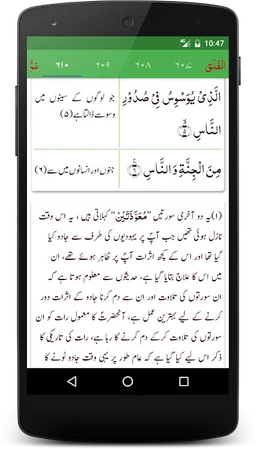 10:47
الْفَلَق ٦٠٧ ٦٠٨ ٦٠٩ ٦١٠ عَمَّ
الَّذِىْ يُوَسْوِسُ فِىْ صُدُوْرِ
النَّاسِ ۝٥
جو لوگوں کے سینوں میں
وسوسے ڈالتا ہے (۵)
مِنَ الْجِنَّةِ وَالنَّاسِ ۝٦
جنوں اور انسانوں میں سے (۶)
(۱) یہ دو آخری سورتیں "معوّذتین" کہلاتی ہیں، یہ اس وقت
نازل ہوئی تھیں جب آپؐ پر یہودیوں کی طرف سے جادو کیا
گیا تھا اور اس کے کچھ اثرات آپؐ پر ظاہر ہوئے تھے، ان
میں اس کا علاج بتایا گیا ہے، حدیثوں سے معلوم ہوتا ہے کہ
ان سورتوں کی تلاوت اور ان سے دم کرنا جادو کے اثرات دور
کرنے کے لیے بہترین عمل ہے، آنحضرتؐ کا معمول رات کو
سورتوں کی تلاوت کر کے دم کرنے کا رہا ہے، رات کی تاریکی کا
ذکر اس لیے کیا گیا ہے کہ عام طور پر یہی وقت جادو ٹونے کا